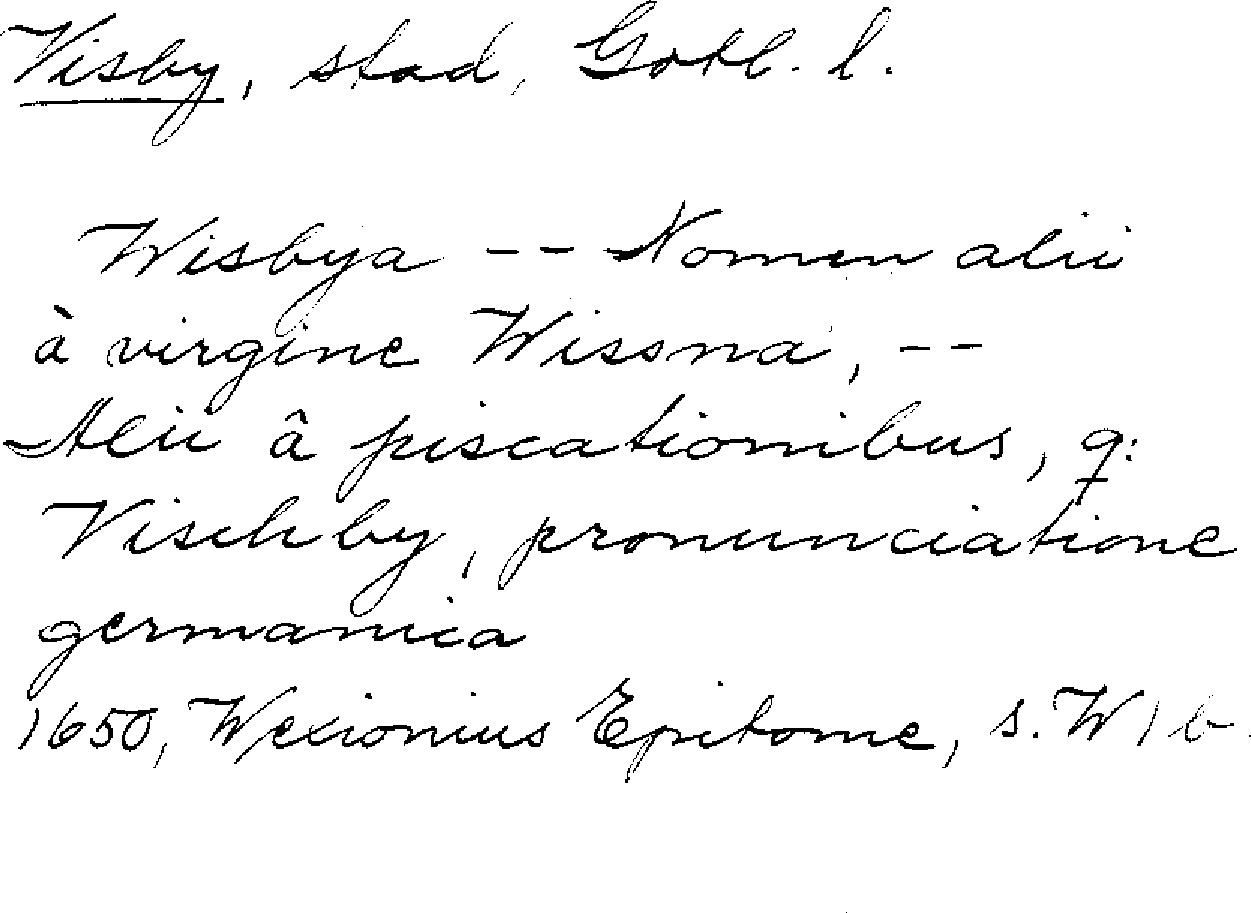 Visby, stad, Gotl. l.
Wisbya -- Nomen alii
à virgine Wissna, --
Alii â piscationibus, q:
Visch by, pronunciatione
germanica
1650, Wexionius Epitome, s. W 1 b.